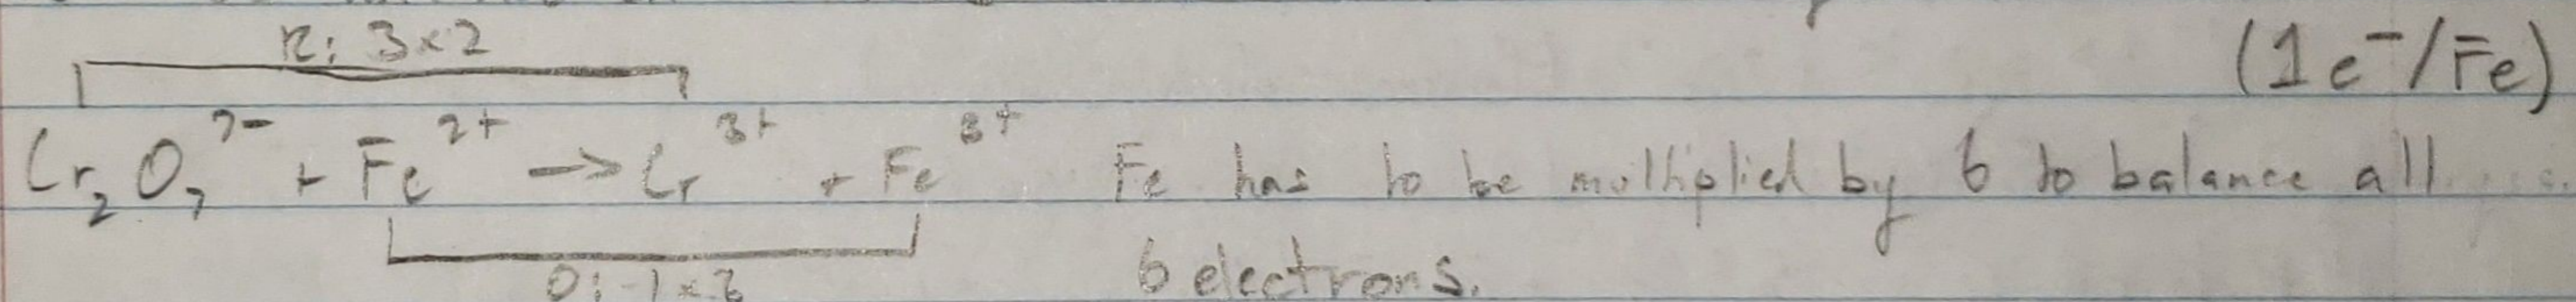 R: 3×2
(1e⁻/Fe)
Cr₂O₇²⁻ + Fe²⁺ → Cr³⁺ + Fe³⁺ Fe has to be multiplied by 6 to balance all
O: -1×6
6 electrons.